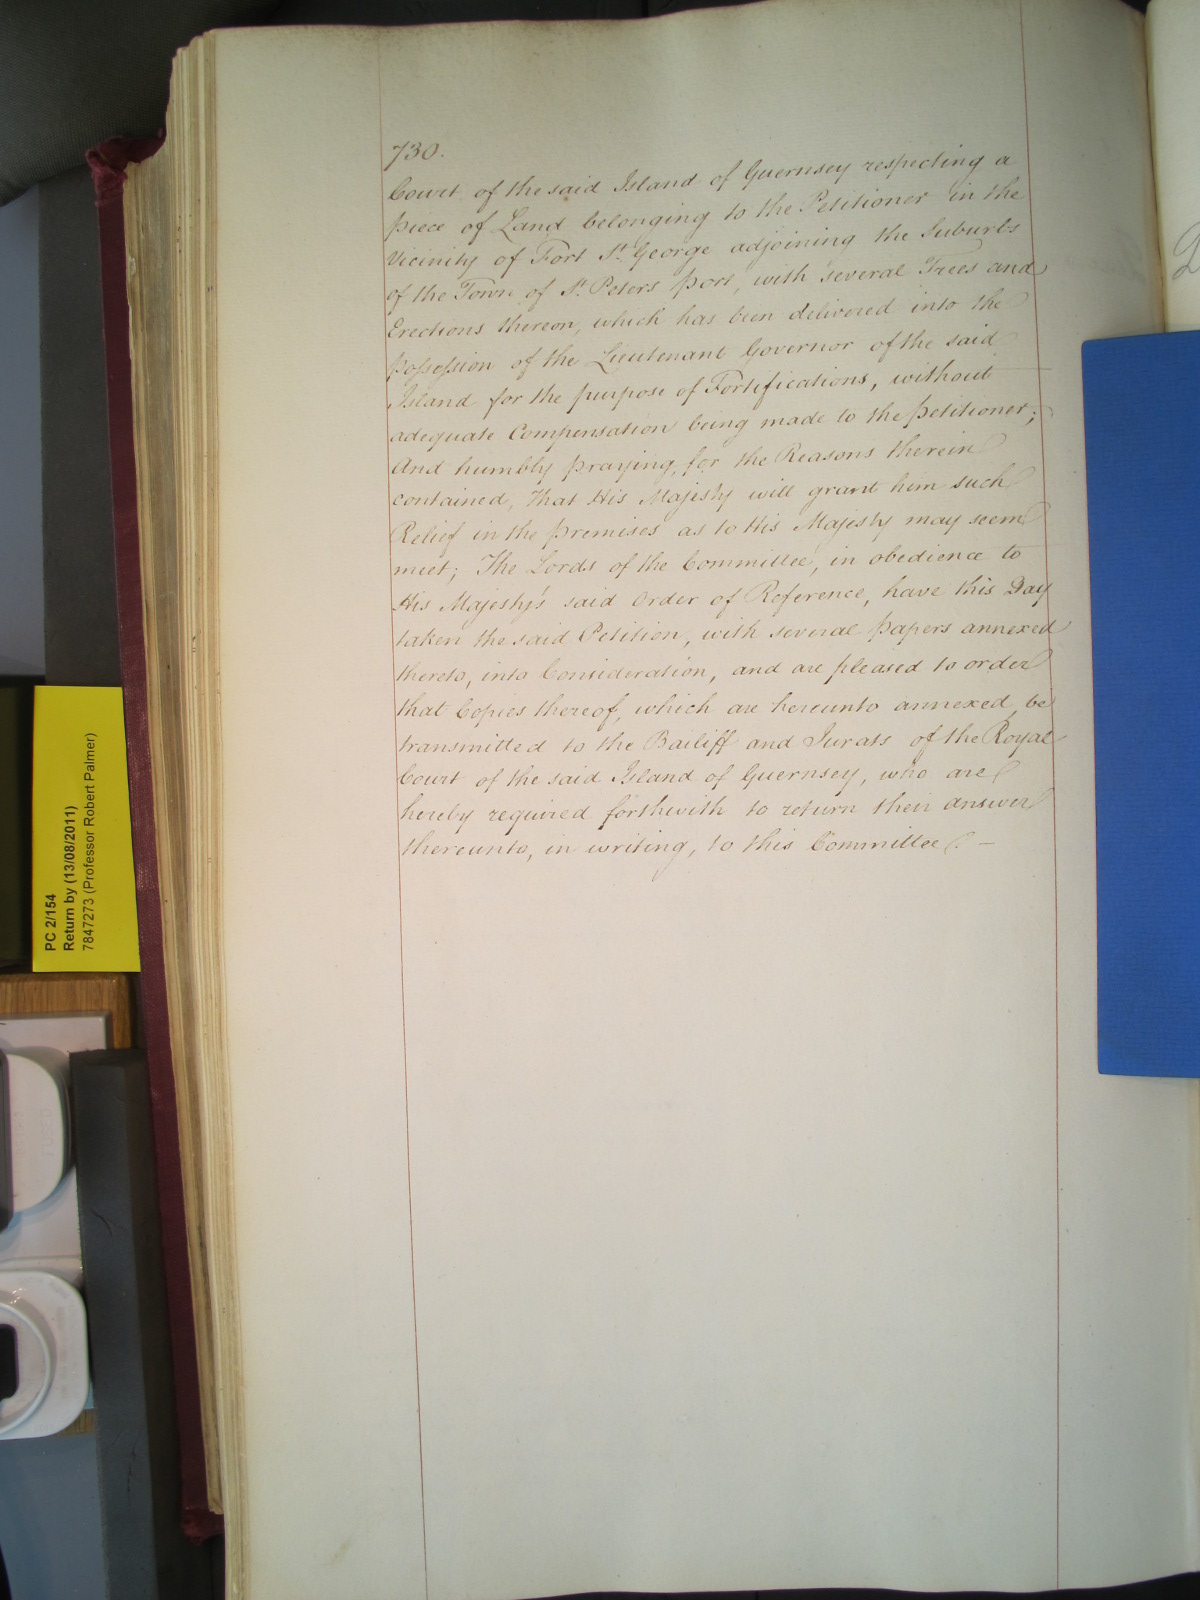 730.
Court of the said Island of Guernsey respecting a
piece of Land belonging to the Petitioner in the
Vicinity of Fort St. George adjoining the Suburbs
of the Town of St. Peters Port, with several Trees and
Erections thereon, which has been delivered into the
Possession of the Lieutenant Governor of the said
Island for the purpose of Fortifications, without
adequate Compensation being made to the Petitioner;
And humbly praying, for the Reasons therein
contained, That His Majesty will grant him such
Relief in the premises as to His Majesty may seem
meet; The Lords of the Committee, in obedience to
His Majesty's said Order of Reference, have this Day
taken the said Petition, with several papers annexed
thereto, into Consideration, and are pleased to order
that Copies thereof, which are hereunto annexed, be
transmitted to the Bailiff and Jurats of the Royal
Court of the said Island of Guernsey, who are
hereby required forthwith to return their answer
thereunto, in writing, to this Committee. —
PC 2/154
Return by (13/08/2011)
7847273 (Professor Robert Palmer)